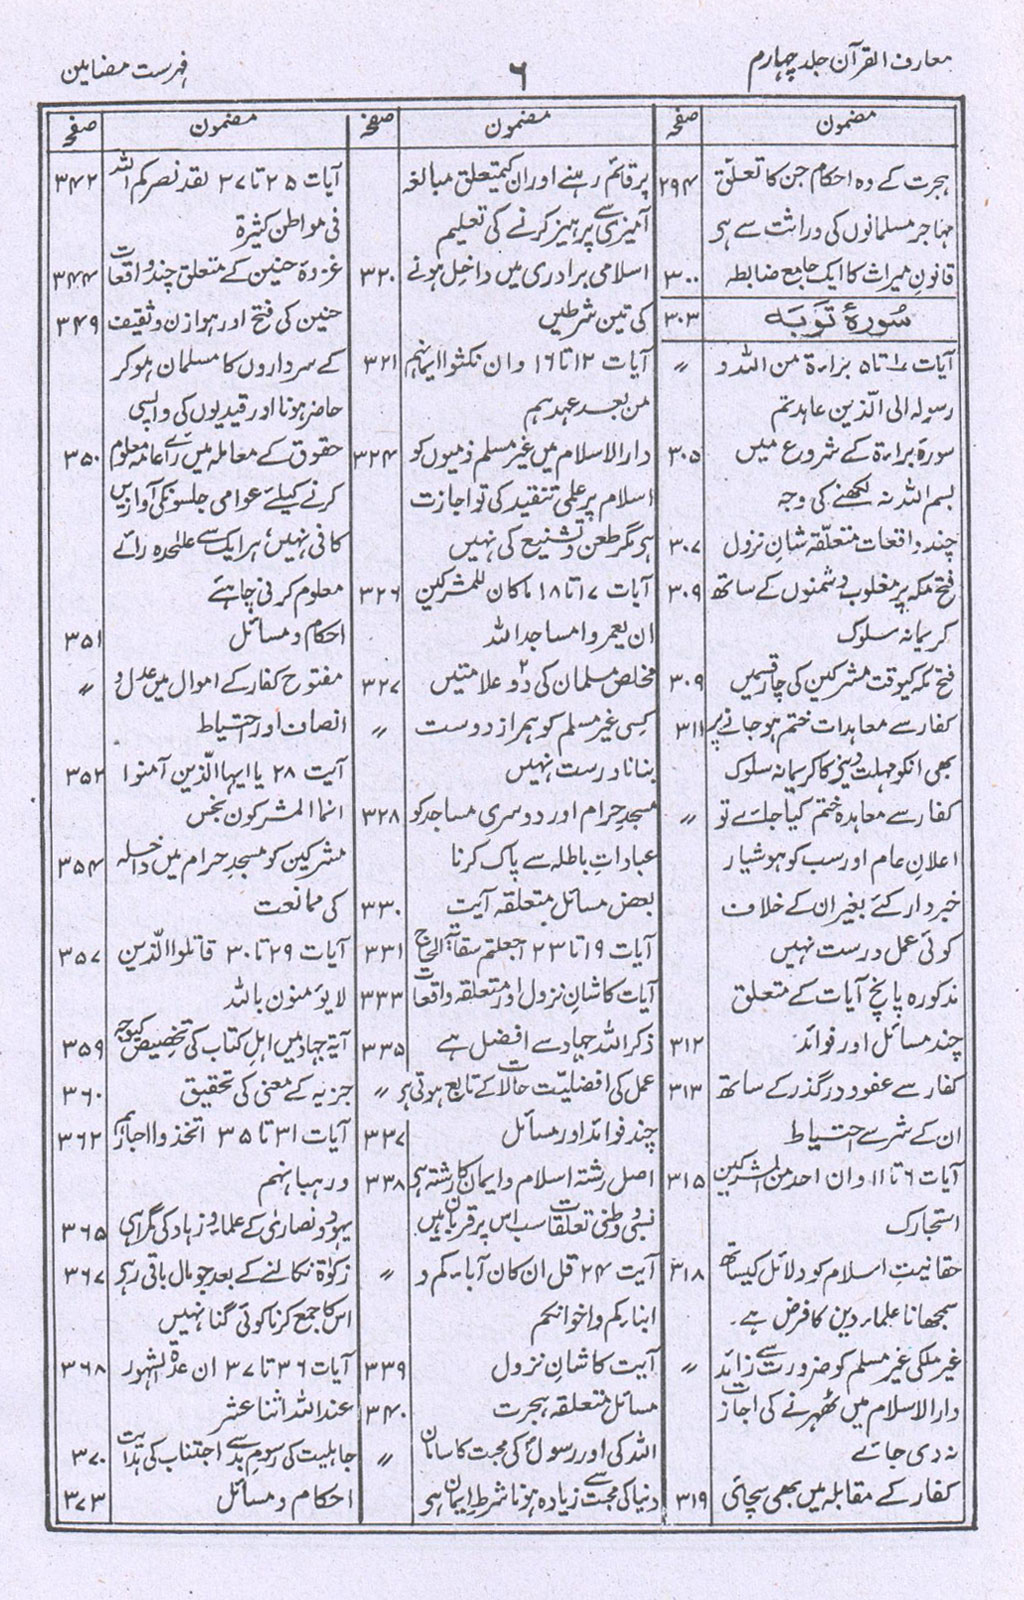 معارف القرآن جلد چہارم
۶
فہرست مضامین
مضمون صفحہ
ہجرت کے وہ احکام جن کا تعلق ۲۹۴
مہاجر مسلمانوں کی وراثت سے ہی
قانونِ میراث کا ایک جامع ضابطہ ۳۰۰
سُورۂ تَوبَہ ۳۰۳
آیات ۱ تا ۵ براءۃ من اللہ و 〃
رسولہ الی الّذین عاہدتم
سورۂ براءۃ کے شروع میں ۳۰۵
بسم اللہ نہ لکھنے کی وجہ
چند واقعات متعلّقہ شانِ نزول ۳۰۷
فتح مکہ پر مغلوب دشمنوں کے ساتھ ۳۰۹
کریمانہ سلوک
فتح مکہ کیوقت مشرکین کی چار قسمیں ۳۰۹
کفار سے معاہدات ختم ہو جانے پر ۳۱۱
بھی انکو مہلت دینے کا کریمانہ سلوک
کفار سے معاہدہ ختم کیا جائے تو 〃
اعلانِ عام اور سب کو ہوشیار
خبردار کئے بغیر ان کے خلاف
کوئی عمل درست نہیں
مذکورہ پانچ آیات کے متعلق
چند مسائل اور فوائد ۳۱۲
کفار سے عفو و درگذر کے ساتھ ۳۱۳
ان کے شر سے احتیاط
آیات ۶ تا ۱۱ وان احد من المشرکین ۳۱۵
استجارک
حقانیتِ اسلام کو دلائل کیساتھ ۳۱۸
سمجھانا علماء دین کا فرض ہے۔
غیر ملکی غیر مسلم کو ضرورت سے زائد 〃
دارالاسلام میں ٹھہرنے کی اجازت
نہ دی جائے
کفار کے مقابلہ میں بھی سچائی ۳۱۹
مضمون صفحہ
پر قائم رہنے اور ان کیمتعلق مبالغہ
آمیزی سے پرہیز کرنے کی تعلیم
اسلامی برادری میں داخل ہونے ۳۲۰
کی تین شرطیں
آیات ۱۲ تا ۱۶ وان نکثوا ایمانہم ۳۲۱
من بعد عہدہم
دارالاسلام میں غیر مسلم ذمیوں کو ۳۲۴
اسلام پر علمی تنقید کی تو اجازت
ہی مگر طعن و تشنیع کی نہیں
آیات ۱۷ تا ۱۸ ماکان للمشرکین ۳۲۶
ان یعمروا مساجد اللہ
مخلص مسلمان کی دو ۲ علامتیں ۳۲۷
کسی غیر مسلم کو ہمراز دوست 〃
بنانا درست نہیں
مسجدِ حرام اور دوسری مساجد کو ۳۲۸
عباداتِ باطلہ سے پاک کرنا
بعض مسائل متعلقہ آیت ۳۳۰
آیات ۱۹ تا ۲۳ اجعلتم سقایۃ الحاج ۳۳۱
آیات کا شانِ نزول اور متعلقہ واقعات ۳۳۳
ذکر اللہ جہاد سے افضل ہے ۳۳۵
عمل کی افضلیّت حالات کے تابع ہوتی ہی 〃
چند فوائد اور مسائل ۳۳۷
اصل رشتہ اسلام و ایمان کا رشتہ ہی ۳۳۸
نسبی و وطنی تعلقات سب اس پر قربان ہیں
آیت ۲۴ قل ان کان آباءکم و 〃
ابناءکم و اخوانکم
آیت کا شانِ نزول ۳۳۹
مسائل متعلقہ ہجرت ۳۴۰
اللہ کی اور رسولؐ کی محبت کا ساری 〃
دنیا کی محبت سے زیادہ ہونا شرطِ ایمان ہی
مضمون صفحہ
آیات ۲۵ تا ۲۷ لقد نصرکم اللہ ۳۴۲
فی مواطن کثیرۃ
غزوۂ حنین کے متعلق چند واقعات ۳۴۴
حنین کی فتح اور ہوازن و ثقیف ۳۴۹
کے سرداروں کا مسلمان ہو کر
حاضر ہونا اور قیدیوں کی واپسی
حقوق کے معاملہ میں رائے عامہ معلوم ۳۵۰
کرنے کیلئے عوامی جلسونکی آوازیں
کافی نہیں، ہر ایک سے علیٰحدہ رائے
معلوم کرنی چاہئے
احکام و مسائل ۳۵۱
مفتوح کفار کے اموال میں عدل و 〃
انصاف اور احتیاط
آیت ۲۸ یا ایہا الّذین آمنوا ۳۵۲
انما المشرکون نجس
مشرکین کو مسجدِ حرام میں داخلہ ۳۵۴
کی ممانعت
آیات ۲۹ تا ۳۰ قاتلوا الّذین ۳۵۷
لا یؤمنون باللہ
آیۃ جہاد میں اہلِ کتاب کی تخصیص کیوجہ ۳۵۹
جزیہ کے معنی کی تحقیق ۳۶۰
آیات ۳۱ تا ۳۵ اتخذوا احبارہم ۳۶۲
و رہبانہم
یہود و نصاریٰ کے علماء و زہاد کی گمراہی ۳۶۵
زکوٰۃ نکالنے کے بعد جو مال باقی رہے ۳۶۷
اس کا جمع کرنا کوئی گناہ نہیں
آیات ۳۶ تا ۳۷ ان عدّۃ الشہور ۳۶۸
عند اللہ اثنا عشر
جاہلیت کی رسومِ بد سے اجتناب کی ہدایت ۳۷۰
احکام و مسائل ۳۷۳